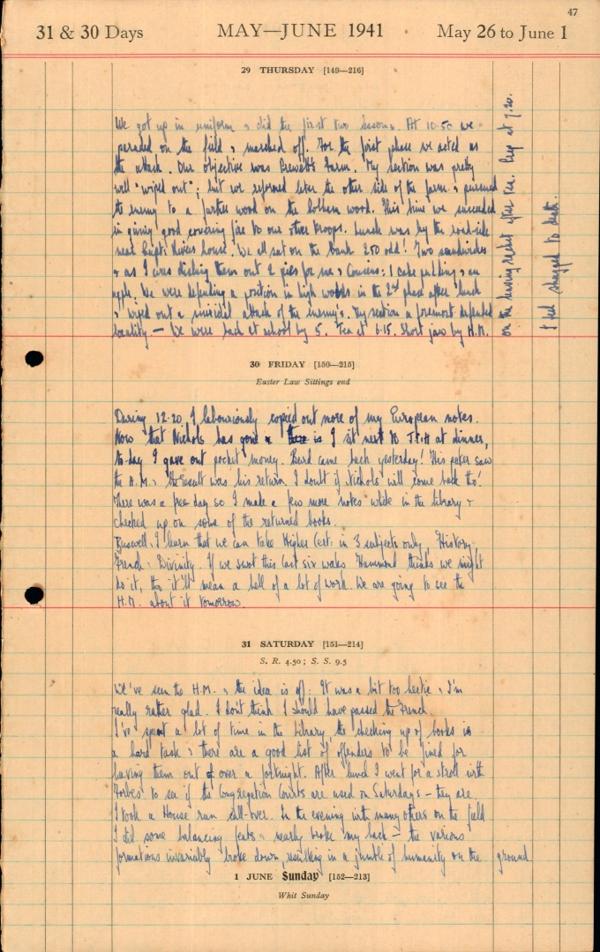 47
31 & 30 Days MAY—JUNE 1941 May 26 to June 1
29 THURSDAY [149—216]
We got up in uniform & did the first two lessons. At 10.50 we
paraded on the field & marched off. For the first phase we acted as
the attack. Our objective was Farm. My section was pretty
well "wiped out"; but we reformed later the other side of the farm & pursued
the enemy to a further wood on the bottom wood. This time we succeeded
in giving good covering fire to our other troops. Lunch was by the road-side
near house. We all sat on the bank 250 odd! Two sandwiches
& as I was dishing them out 2 pies for me & Cousens: 1 cake pudding & an
apple. We were defending a position in high woods in the 2nd phase after lunch
& wiped out a suicidal attack of the enemy's. My section a foremost defended
locality — We were back at school by 5. Tea at 6.15. Short jaw by H.M.
on the after tea. Prep at 7.20.
I feel shagged to death.
30 FRIDAY [150—215]
Easter Law Sittings end
During 12.20 I labouriously copied out more of my European notes.
Now that Nichols has gone is I sit next to at dinner,
to-day I gave out pocket money. Beard came back yesterday! His pater saw
the H.M. & the result was his return. I doubt if Nichols will come back tho'.
There was a free day so I made a few more notes while in the library &
checked up on some of the returned books.
Buswell & I learn that we can take Higher Cert: in 3 subjects only, History,
French & Divinity. If we swot this last six weeks Hammond thinks we might
do it, tho' it'll mean a hell of a lot of work. We are going to see the
H.M. about it tomorrow.
31 SATURDAY [151—214]
S. R. 4.50; S. S. 9.5
We've seen the H.M. & the idea is off. It was a bit too hectic & I'm
really rather glad. I don't think I should have passed the French.
I've spent a lot of time in the Library, the checking up of books is
a hard task & there are a good list of offenders to be fined for
having them out of over a fortnight. After lunch I went for a stroll with
Forbes to see if the Congregation Courts are used on Saturdays – they are.
I took a House run all-over. In the evening with many others on the field
I did some balancing feats & nearly broke my back – the various
formations invariably broke down, resulting in a jumble of humanity on the ground.
1 JUNE Sunday [152—213]
Whit Sunday